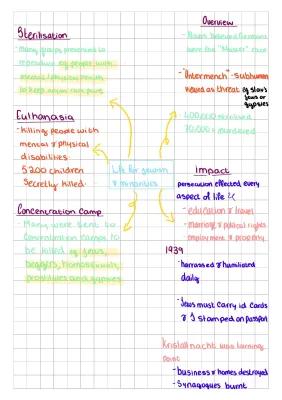 Sterilisation
- Many groups prevented to
reproduce eg people with
mental / physical health
to keep aryan race pure
Euthanasia
- killing people with
mental & physical
disabilities.
5200 children
secretly killed.
Concentration Camp
- Many were sent to
concentration camps to
be killed eg jews,
beggars, homosexuals,
prostitutes and gypsies
life for jewish
& minorities
Overview
- Nazis believed Germans
were the "Master" race
- "Untermench" - subhuman
viewed as threat eg slav's
jews or
gypsies
- 400,000 sterilised
70,000 murdered
Impact
persecution effected every
aspect of life
- education & travel
- marriage & political rights
employment & property
1939
- harrassed & humiliated
daily
- Jews must carry id cards
& J stamped on passport
Kristallnacht was turning
point
- business & homes destroyed
- Synagogues burnt